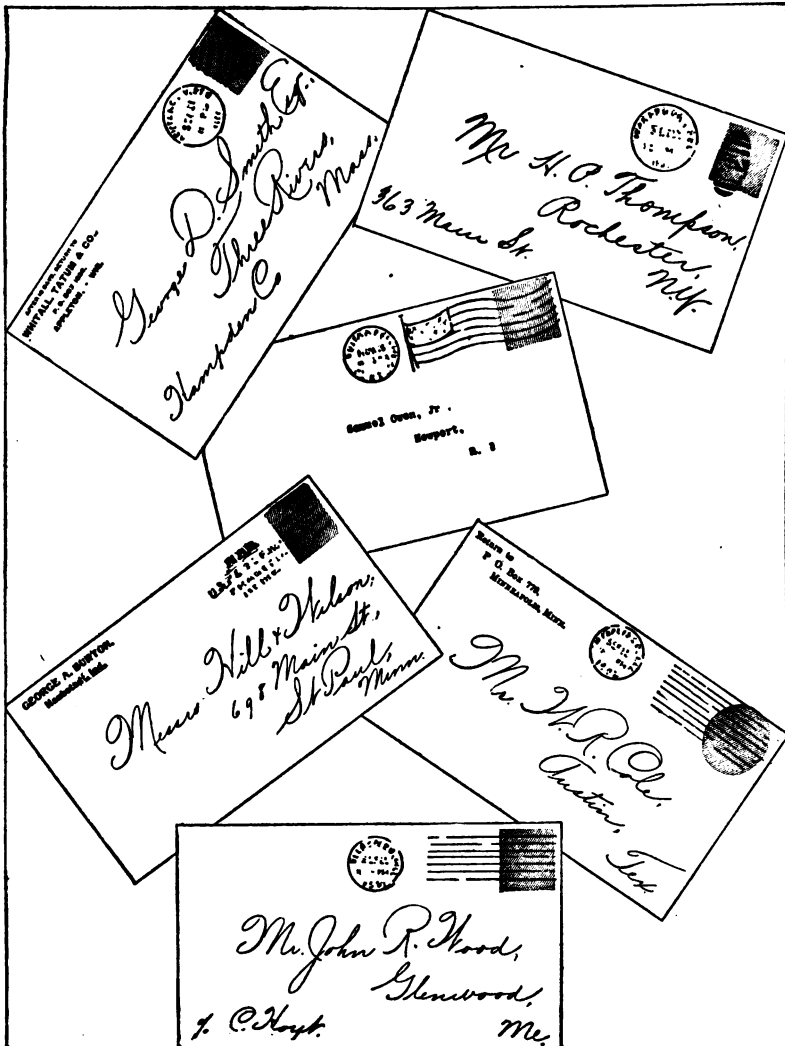 AFTER 10 DAYS, RETURN TO
WHITALL TATUM & CO.,
APPLETON, - WIS.
George D. Smith Esq.:
Three Rivers,
Mass.
Hampden Co
Mr H. P. Thompson,
Rochester,
N.Y.
363 Main St.
Samuel Owen, Jr.
Newport,
R. I
GEORGE A. BOWTON,
Ind.
Messrs. Hill & Wilson,
698 Main St.,
St Paul,
Minn.
Return to
P O. Box 778,
MINNEAPOLIS, MINN.
Mr. W. R. Cole,
Austin,
Tex
Mr. John R. Wood,
Glenwood,
% C. Hoyt.
Me.